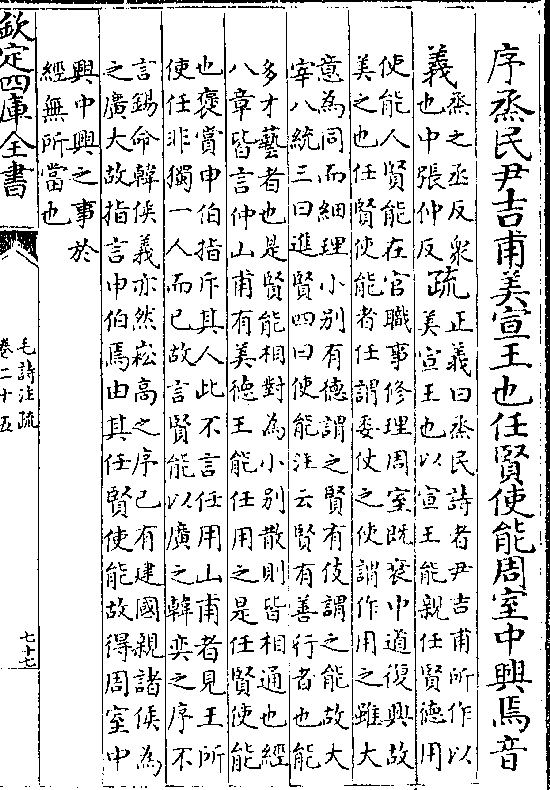 序烝民尹吉甫美宣王也任賢使能周室中興焉音
義烝之丞反衆
也中張仲反疏正義曰烝民詩者尹吉甫所作以
美宣王也以宣王能親任賢德用
使能人賢能在官職事修理周室既衰中道復興故
美之也任賢使能者任謂委仗之使謂作用之雖大
意為同而細理小别有德謂之賢有伎謂之能故大
宰八統三曰進賢四曰使能注云賢有善行者也能
多才藝者也是賢能相對為小别散則皆相通也經
八章皆言仲山甫有美德王能任用之是任賢使能
也褒賞申伯指斥其人此不言任用山甫者見王所
使任非獨一人而已故言賢能以廣之韓奕之序不
言錫命韓侯義亦然崧高之序已有建國親諸侯為
之廣大故指言申伯焉由其任賢使能故得周室中
興中興之事於
經無所當也
欽定四庫全書
毛詩注疏
卷二十五
七十七